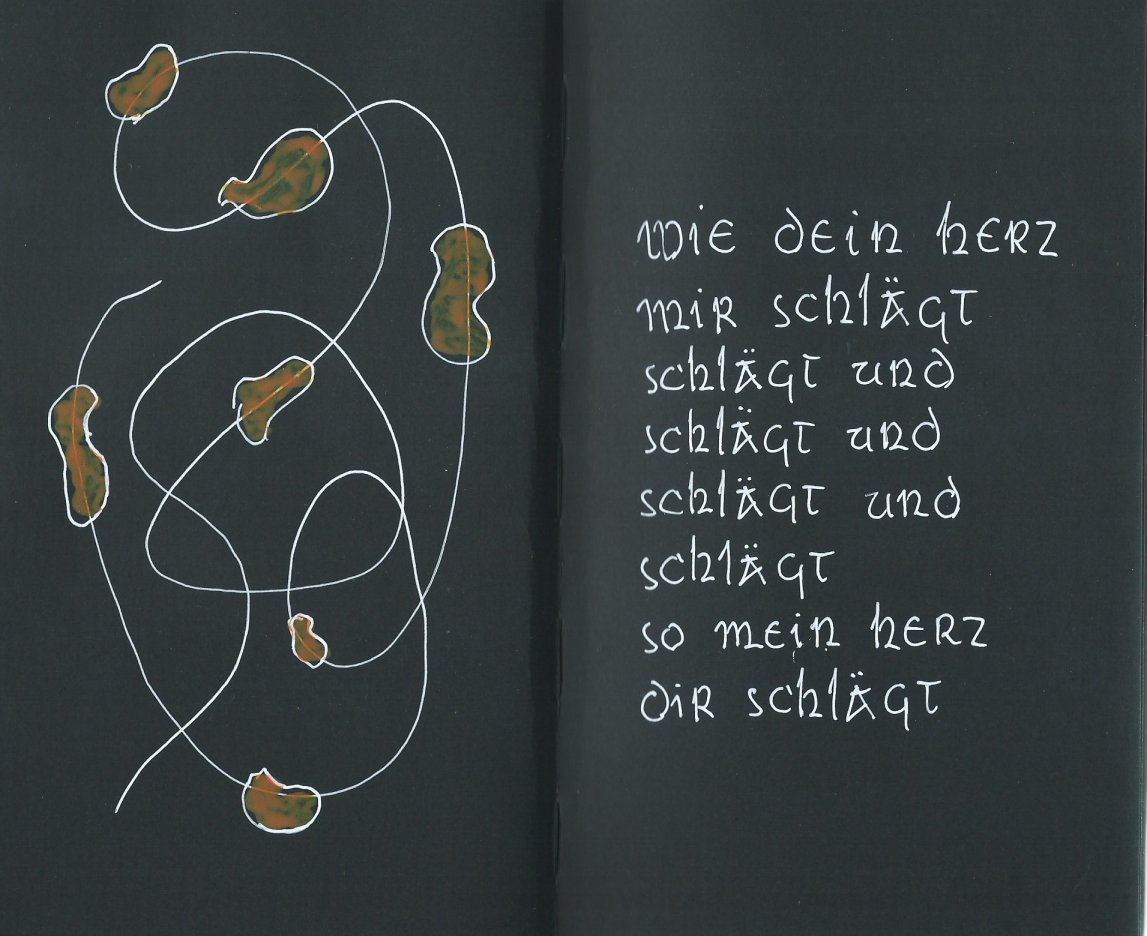 wie dein herz
mir schlägt
schlägt und
schlägt und
schlägt und
schlägt
so mein herz
dir schlägt